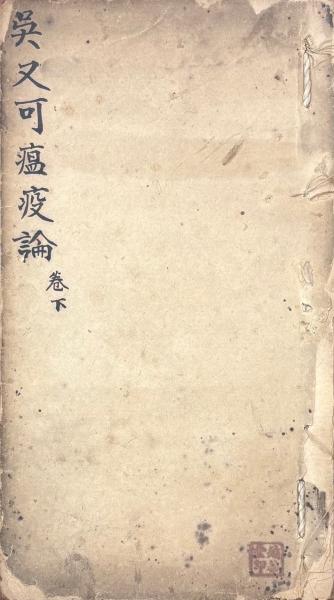 吳又可瘟疫論
卷下